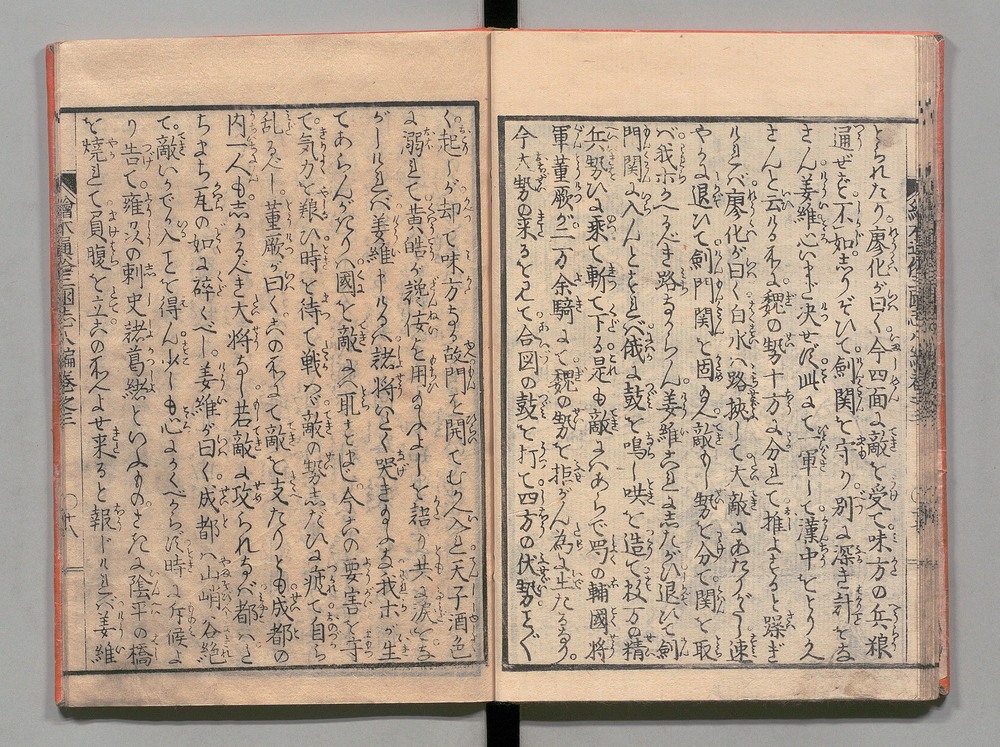 とられたり廖化が曰く今四面に敵を受て味方の兵粮
通ぜざれバ不如しりぞひて劔関を守り別に深き計をな
さん姜維心いまだ决せざる此にて一軍して漢中をとり久
さんと云る処に魏の勢十方に分れて推よすると躁ぎ
ければ廖化が曰く白水ハ路挾して大敵にあたりがたし速
やかに退ひて劔門関を固め敵もし勢を分て関を取
バ我ホかへるべき路なからん姜維これにしたがひ退ひて劔
門関に入んとすれバ俄に鼓を鳴し哄を造て数万の精
兵勢ひに乗て斬て下る是も敵にハあらで蜀の輔國将
軍董厥が二万余騎にて魏の勢を拒がん為に出たるなり
今大勢の来るを見て合図の鼓を打て四方の伏勢をことごと
く起しが却て味方なる故門を開てむかへ入れ天子酒色
に溺れて黄皓が讒佞を用るのよしを語り共に涙をな
がしければ姜維申けるハ諸将いたく哭きなかれ我ホが生
てあらんかぎりハ國を敵にハ取らせじ今この要害を守
て気力を養ひ時を待て戦ハバ敵の勢したひに疲て自ら
乱るべし董厥が曰くこの処にて敵を支たりとも成都の
内一人もしかる人き大将なし若敵に攻られなバ都ハたち
まち瓦の如に碎くべし姜維が曰く成都ハ山峭谷絶
て敵いかでか入ことを得ん少しも心よかくべからず時に斥候よ
り告て雍州の刺史諸葛緒といふものさきに陰平の橋
を燒れて負腹を立この処へよせ来ると報じければ姜維
繪本通俗三國志八編巻之三
十八